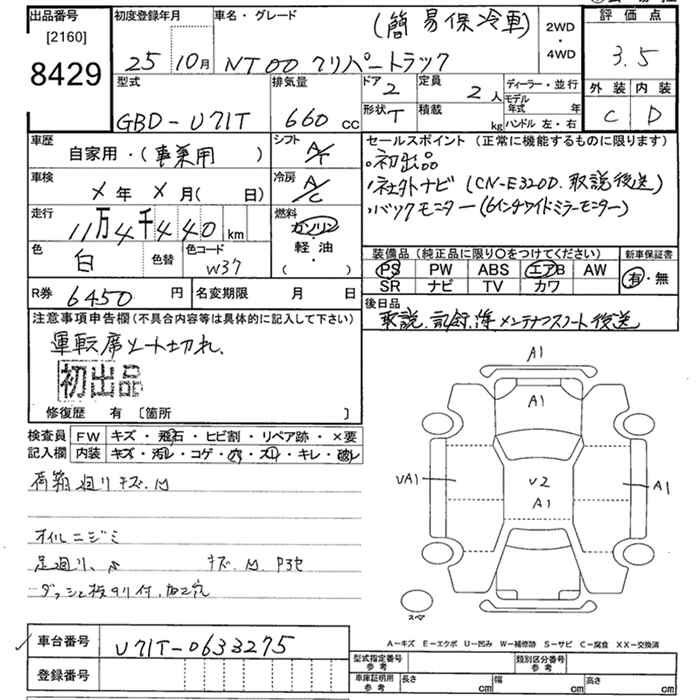 出品番号
[2160]
8429
初度登録年月
25 10月
車名・グレード
(簡易保冷車)
NT00 クリパートラック
2WD
・
4WD
評価点
3.5
外装 内装
C D
型式
GBD-U71T
排気量
660 cc
ドア 2
形状 T
定員 2人
積載 kg
ディーラー・並行
モデル年式 年
ハンドル 左・右
車歴
自家用・(事業用)
車検
×年 ×月( 日)
走行
11万4千440km
色 白
色替
色コード
W37
シフト A/T
冷房 A/C
燃料
ガソリン
・
軽・油
・
( )
セールスポイント (正常に機能するものに限ります)
・初出品
・社外ナビ (CN-E320D.取説後送)
・バックモニター(6インチワイドミラーモニター)
装備品(純正品に限り○をつけてください)
PS PW ABS エアB AW
SR ナビ TV カワ
新車保証書
有・無
R券 6450円
名変期限 月 日
後日品
取説.記録簿 メンテナンスノート後送
注意事項申告欄(不具合内容等は具体的に記入して下さい)
運転席シート切れ.
初出品
修復歴 有 [箇所 ]
検査員記入欄
FW キズ・飛石・ヒビ割・リペア跡・×要
内装 キズ・汚レ・コゲ・穴・スレ・キレ・破レ
荷箱廻りキズ.凹
オイルニジミ
足廻り.S キズ.凹 P3セ
ダッシュ板のり付.加工穴
A1
A1
U2
A1
UA1
A1
スペア
A-キズ E-エクボ U-凹み W-補修跡 S-サビ C-腐食 XX-交換済
車台番号 U71T-0633275
登録番号
型式指定番号 参考
類別区分番号 参考
車庫証明用 参考
長さ cm
幅 cm
高さ cm